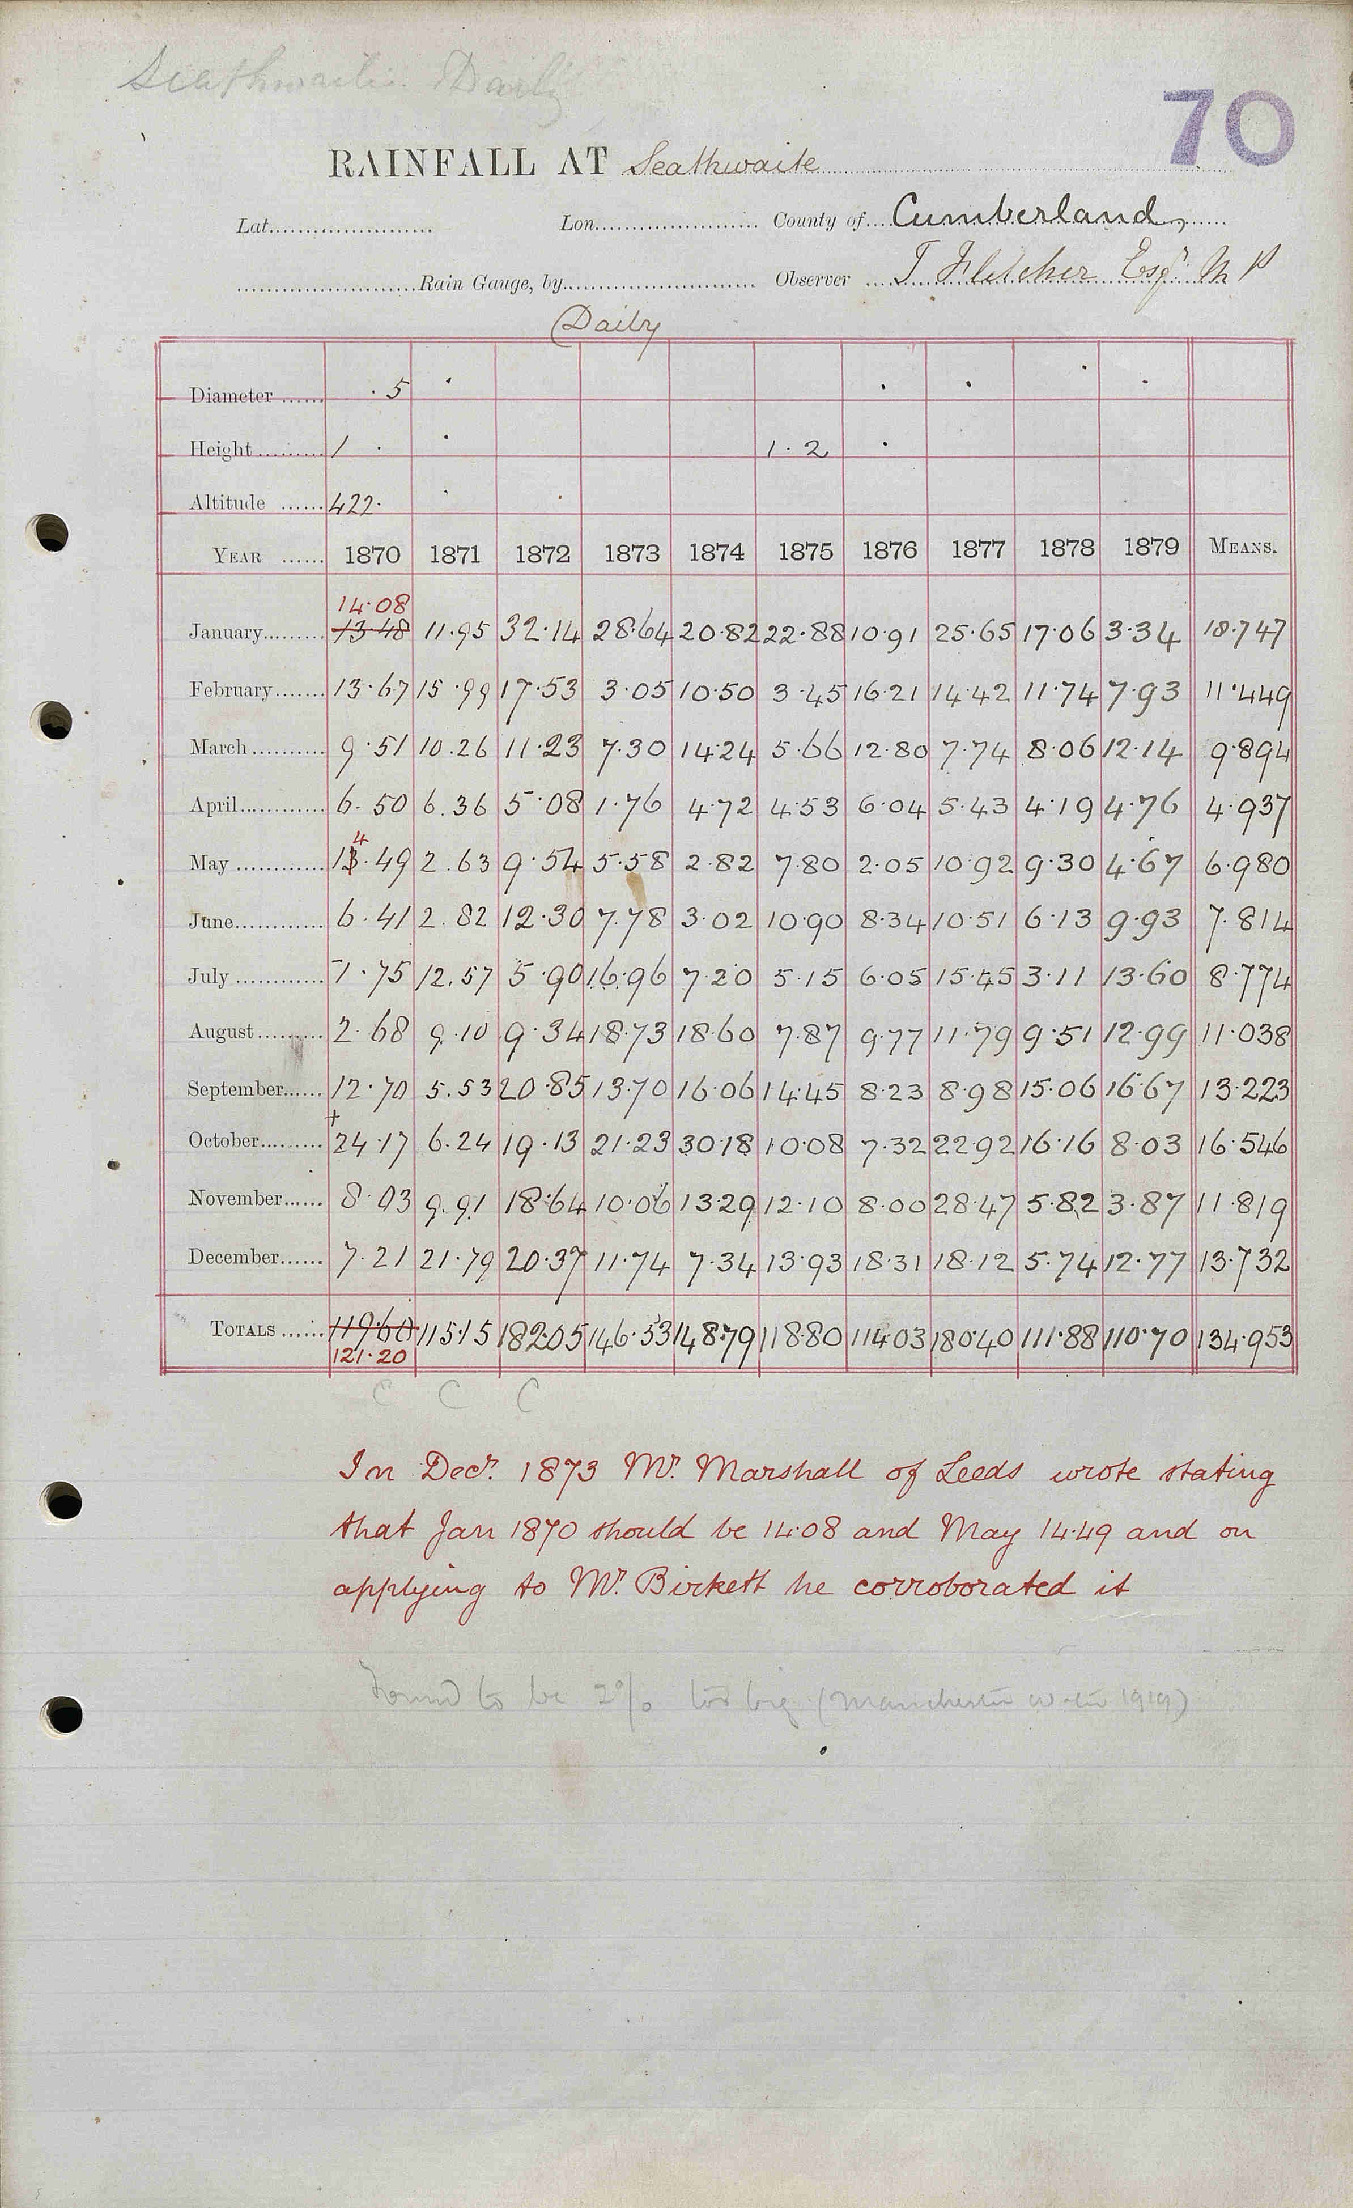 Seathwaite Daily
70
RAINFALL AT Seathwaite
Lat. Lon. County of Cumberland,
Rain Gauge, by Observer T Fletcher Esqr M P
Daily
Diameter · 5 · · · · ·
Height 1 · · 1 · 2 ·
Altitude 422· · ·
YEAR 1870 1871 1872 1873 1874 1875 1876 1877 1878 1879 MEANS.
14·08
January 13·48 11·95 32·14 28·64 20·82 22·88 10·91 25·65 17·06 3·34 18·747
February 13·67 15·99 17·53 3·05 10·50 3·45 16·21 14·42 11·74 7·93 11·449
March 9·51 10·26 11·23 7·30 14·24 5·66 12·80 7·74 8·06 12·14 9·894
April 6·50 6·36 5·08 1·76 4·72 4·53 6·04 5·43 4·19 4·76 4·937
4
May 13·49 2·63 9·54 5·58 2·82 7·80 2·05 10·92 9·30 4·67 6·980
June 6·41 2·82 12·30 7·78 3·02 10·90 8·34 10·51 6·13 9·93 7·814
July 1·75 12·57 5·90 16·96 7·20 5·15 6·05 15·45 3·11 13·60 8·774
August 2·68 9·10 9·34 18·73 18·60 7·87 9·77 11·79 9·51 12·99 11·038
September 12·70 5·53 20·85 13·70 16·06 14·45 8·23 8·98 15·06 16·67 13·223
+
October 24·17 6·24 19·13 21·23 30·18 10·08 7·32 22·92 16·16 8·03 16·546
November 8·03 9·91 18·64 10·06 13·29 12·10 8·00 28·47 5·82 3·87 11·819
December 7·21 21·79 20·37 11·74 7·34 13·93 18·31 18·12 5·74 12·77 13·732
TOTALS 119·60 115·15 182·05 146·53 148·79 118·80 114·03 180·40 111·88 110·70 134·953
121·20
C C C
In Decr. 1873 Mr. Marshall of Leeds wrote stating
that Jan 1870 should be 14·08 and May 14·49 and on
applying to Mr. Birkett he corroborated it
Found to be 2% too big (Manchester 1919)